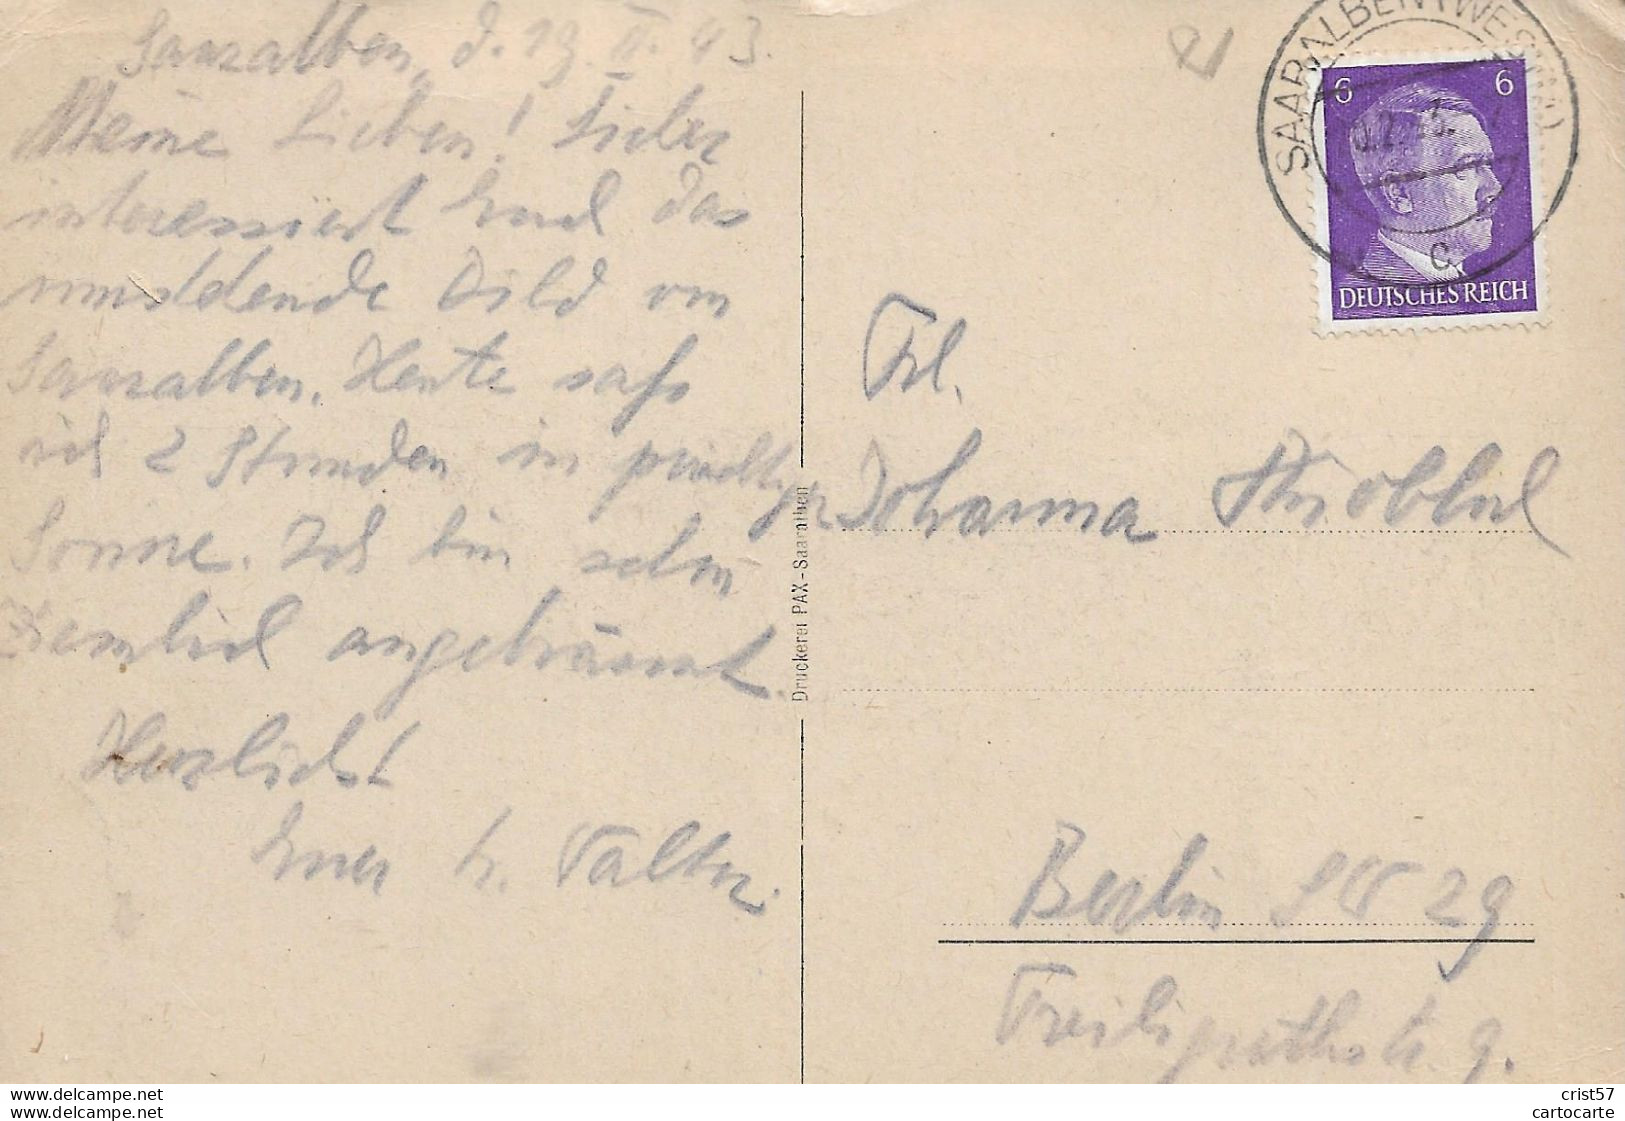 Saaralben, d. 19. II. 43.
Meine Lieben! Sicher
interessiert Euch das
umstehende Bild von
Saaralben. Heute saß
ich 2 Stunden in prächtiger
Sonne. Ich bin schon
ziemlich angebräunt.
Herzlichst
Euer Walter.
Druckerei PAX-Saaralben
SAARALBEN (WESTM)
c
6 6
DEUTSCHES REICH
Frl.
Johanna
Berlin SW 29
Freiligrathstr. 9.
crist57
cartocarte